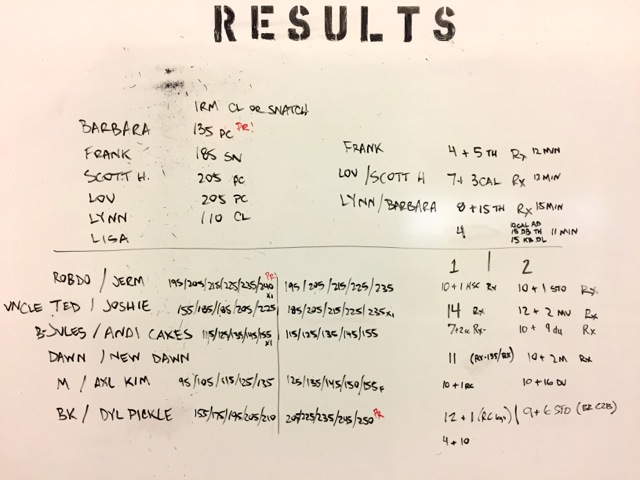 RESULTS
1RM CL OR SNATCH
BARBARA 135 PC PR!
FRANK 185 SN FRANK 4 + 5 TH RX 12 MIN
SCOTT H. 205 PC LOU / SCOTT H 7 + 3 CAL RX 12 MIN
LOU 205 PC LYNN / BARBARA 8 + 15 TH RX 15 MIN
LYNN 110 CL 4 10 CAL AD 15 DB TH 15 KB DL 11 MIN
LISA
1 | 2
ROBDO / JERM 195/205/215/225/235/240 x1 PR 195/205/215/225/235 10 + 1 HSC RX 10 + 1 STO RX
UNCLE TED / JOSHIE 155/185/185/205/225 185/205/215/225/235 x1 14 RX 12 + 2 MU RX
B-JULES / ANDI CAKES 115/125/135/145/155 x1 115/125/135/145/155 7 + RX 10 + 9 DU RX
DAWN / NEW DAWN 11 (RX-135/RX) 10 + 2 M RX
M / AXL KIM 95/105/115/125/135 125/135/145/150/155 F 10 + 1 RC 10 + 16 DU
BK / DYL PICKLE 155/175/195/205/210 205/225/235/245/250 PR 12 + 1 (RC | 9 + 6 STO (BK C2B)
4 + 10